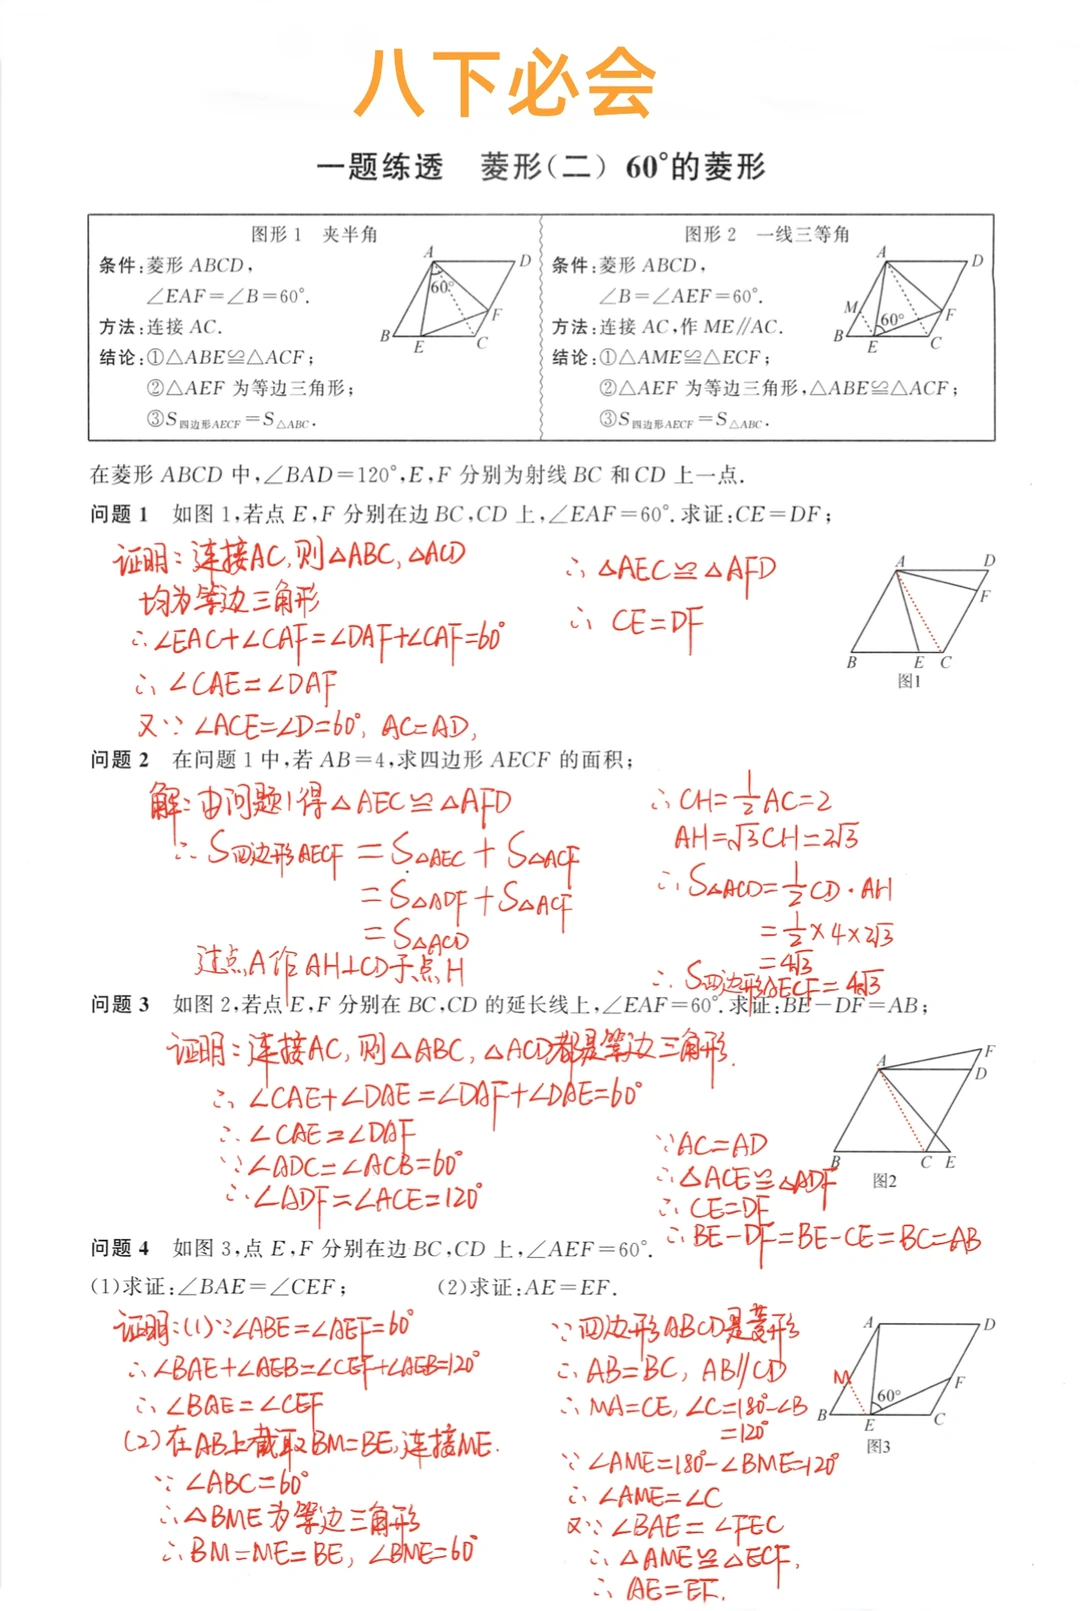 八下必会
一题练透 菱形(二) 60°的菱形
图形1 夹半角
条件:菱形ABCD,
∠EAF=∠B=60°.
方法:连接AC.
结论:①△ABE≌△ACF;
②△AEF为等边三角形;
③S四边形AECF=S△ABC.
A
D
60°
F
B
E
C
图形2 一线三等角
条件:菱形ABCD,
∠B=∠AEF=60°.
方法:连接AC,作ME∥AC.
结论:①△AME≌△ECF;
②△AEF为等边三角形,△ABE≌△ACF;
③S四边形AECF=S△ABC.
A
D
M
60°
F
B
E
C
在菱形ABCD中,∠BAD=120°,E,F分别为射线BC和CD上一点.
问题1 如图1,若点E,F分别在边BC,CD上,∠EAF=60°.求证:CE=DF;
证明:连接AC,则△ABC,△ACD
均为等边三角形
∴∠EAC+∠CAF=∠DAF+∠CAF=60°
∴∠CAE=∠DAF
又∵∠ACE=∠D=60°, AC=AD,
∴△AEC≌△AFD
∴CE=DF
A
D
F
B
E
C
图1
问题2 在问题1中,若AB=4,求四边形AECF的面积;
解:由问题1得△AEC≌△AFD
∴S四边形AECF=S△AEC+S△ACF
=S△ADF+S△ACF
=S△ACD
过点A作AH⊥CD于点H
∴CH=1/2AC=2
AH=√3CH=2√3
∴S△ACD=1/2CD·AH
=1/2×4×2√3
=4√3
∴S四边形AECF=4√3
问题3 如图2,若点E,F分别在BC,CD的延长线上,∠EAF=60°.求证:BE-DF=AB;
证明:连接AC,则△ABC,△ACD都是等边三角形.
∴∠CAE+∠DAE=∠DAF+∠DAE=60°
∴∠CAE=∠DAF
∵∠ADC=∠ACB=60°
∴∠ADF=∠ACE=120°
∵AC=AD
∴△ACE≌△ADF
∴CE=DF
∴BE-DF=BE-CE=BC=AB
A
F
D
B
C
E
图2
问题4 如图3,点E,F分别在边BC,CD上,∠AEF=60°.
(1)求证:∠BAE=∠CEF; (2)求证:AE=EF.
证明:(1)∵∠ABE=∠AEF=60°
∴∠BAE+∠AEB=∠CEF+∠AEB=120°
∴∠BAE=∠CEF
(2)在AB上截取BM=BE,连接ME.
∵∠ABC=60°
∴△BME为等边三角形
∴BM=ME=BE, ∠BME=60°
∵四边形ABCD是菱形
∴AB=BC, AB∥CD
∴MA=CE, ∠C=180°-∠B
=120°
∵∠AME=180°-∠BME=120°
∴∠AME=∠C
又∵∠BAE=∠FEC
∴△AME≌△ECF,
∴AE=EF.
A
D
M
60°
F
B
E
C
图3